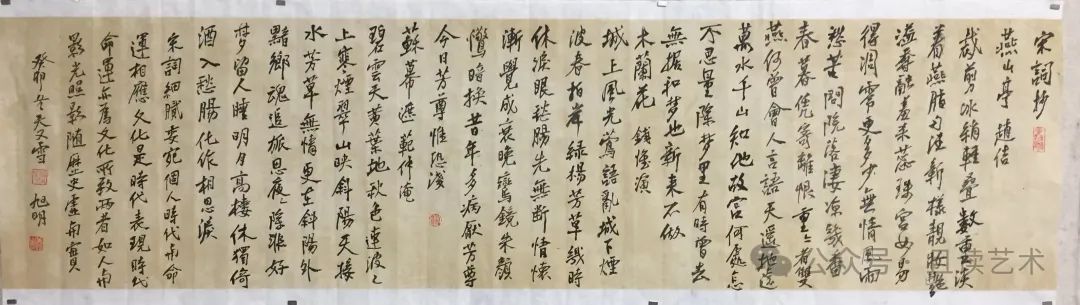 宋詞抄
燕山亭 趙佶
裁剪冰綃輕疊數重淡
著燕脂勻注新樣靚妝艷
溢香融羞杀蕊珠宮女易
得凋零更多少無情風雨
愁苦問院落淒涼幾番
春暮凭寄離恨重〻者雙
燕何曾會人言語天遥地远
萬水千山知他故宮何處怎
不思量除梦里有時曾去
無据和梦也新来不做
木蘭花 錢惟演
城上風光鶯語亂城下煙
波春拍岸綠楊芳草幾時
休淚眼愁腸先無断情懷
漸覺成衰晚鸞鏡朱顏
驚暗換昔年多病厭芳尊
今日芳尊惟恐淺
蘇幕遮 範仲淹
碧雲天黄葉地秋色連波〻
上寒煙翠山映斜陽天接
水芳草無情更在斜陽外
黯鄉魂追旅思夜〻除非好
梦留人睡明月高樓休獨倚
酒入愁腸化作相思淚
宋詞細膩委宛個人時代命
運相應文化是時代表現時代
命運亦為文化所教两者如人与
影光照影随歷史虛与實
癸卯冬天又雪 旭明
公众号·且读艺术